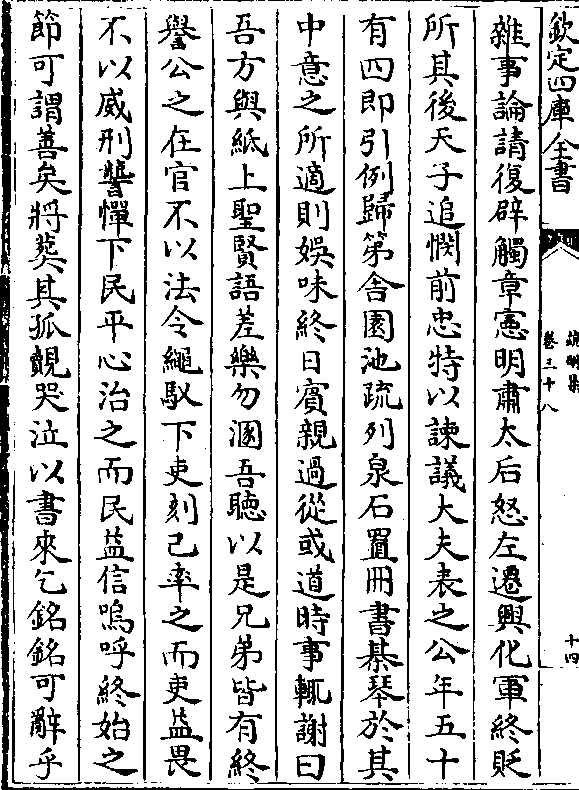 欽定四庫全書
鐔津集
卷三十八
十四
雜事論請復辟觸章憲明肅太后怒左遷興化軍終貶
所其後天子追憫前忠特以諫議大夫表之公年五十
有四即引例歸第舍園池疏列泉石置冊書棊琴於其
中意之所適則娛味終日賓親過從或道時事輒謝曰
吾方與紙上聖賢語差樂勿溷吾聽以是兄弟皆有終
譽公之在官不以法令繩馭下吏刻己率之而吏益畏
不以威刑讋憚下民平心治之而民益信嗚呼終始之
節可謂善矣將葬其孤覿哭泣以書來乞銘銘可辭乎